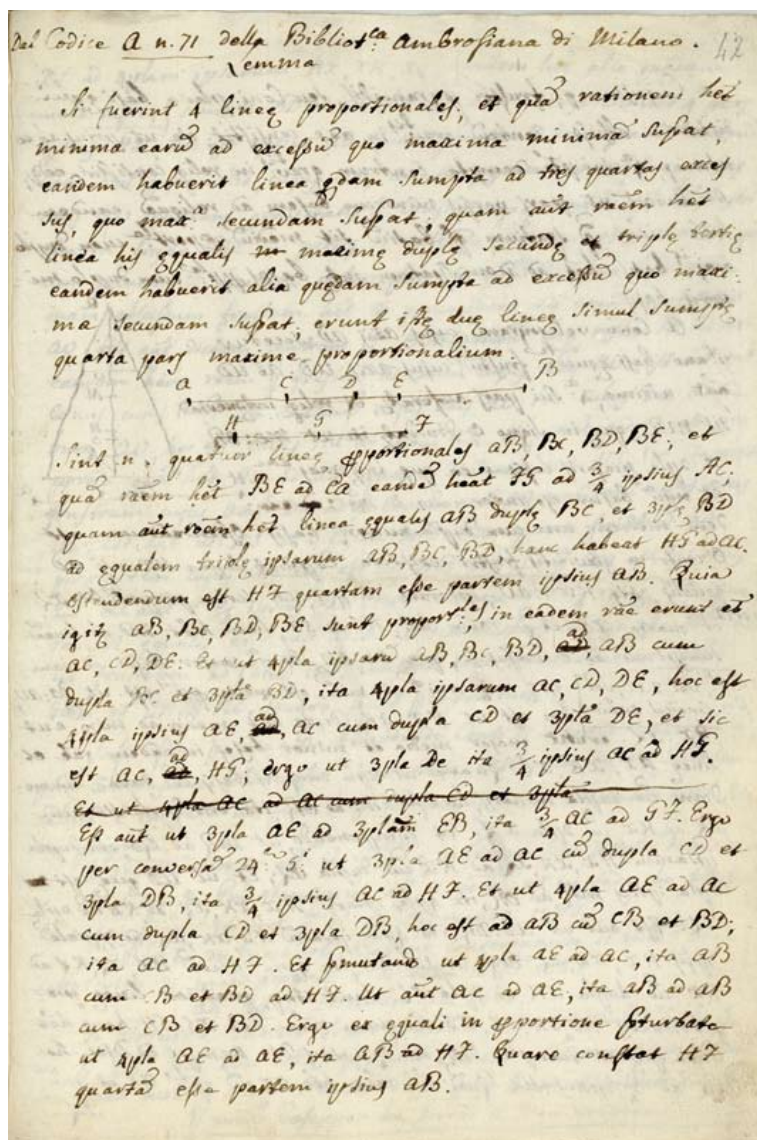 Dal Codice A n. 71 della Bibliot.ca Ambrosiana di Milano. 42
Lemma
Si fuerint 4 lineę proportionales, et quā rationem het
minima earū ad excessū quo maxima minimā supat,
eandem habuerit linea qdam sumpta ad tres quartas exces
sus, quo max.a secundam supat; quam aūt rōem hēt
linea his ęqualis maximę duplę secundę et triplę tertię
eandem habuerit alia quędam sumpta ad excessū quo maxi
ma secundam supat; erunt istę duę lineę simul sumptę
quarta pars maxime proportionalium.
A C D E B
H G F
Sint n. quatuor lineę pportionales AB, BC, BD, BE; et
quā rōem hēt BE ad CA eandē heāt FG ad 3/4 ipsius AC;
quam aūt rōem hēt linea ęqualis AB duplę BC, et 3plę BD
ad ęqualem triplę ipsarum AB, BC, BD, hanc habeat HG ad AC.
Ostendendum est HF quartam esse partem ipsius AB. Quia
igit AB, BC, BD, BE sunt proport.les, in eadem rōe erunt et
AC, CD, DE. Et ut 4pla ipsarū AB, BC, BD, ad, AB cum
dupla BC et 3pla BD, ita 4pla ipsarum AC, CD, DE, hoc est
4pla ipsius AE ad, AC cum dupla CD et 3pla DE, et sic
est AC, ad, HG; ergo ut 3pla De ita 3/4 ipsius AC ad HG.
Et ut 4pla AC ad AC cum dupla CD et 3pla
Est aūt ut 3pla AE ad 3plam EB, ita 3/4 AC ad GF. Ergo
per conversā 24 5.i ut 3pla AE ad AC cū dupla CD et
3pla DB, ita 3/4 ipsius AC ad HF. Et ut 4pla AE ad AC
cum dupla CD et 3pla DB, hoc est ad AB cū CB et BD;
ita AC ad HF. Et pmutando ut 4pla AE ad AC, ita AB
cum CB et BD ad HF. Ut aūt AC ad AE, ita AB ad AB
cum CB et BD. Ergo ex ęquali in pportione pturbata
ut 4pla AE ad AE, ita AB ad HF. Quare constat HF
quartā esse partem ipsius AB.